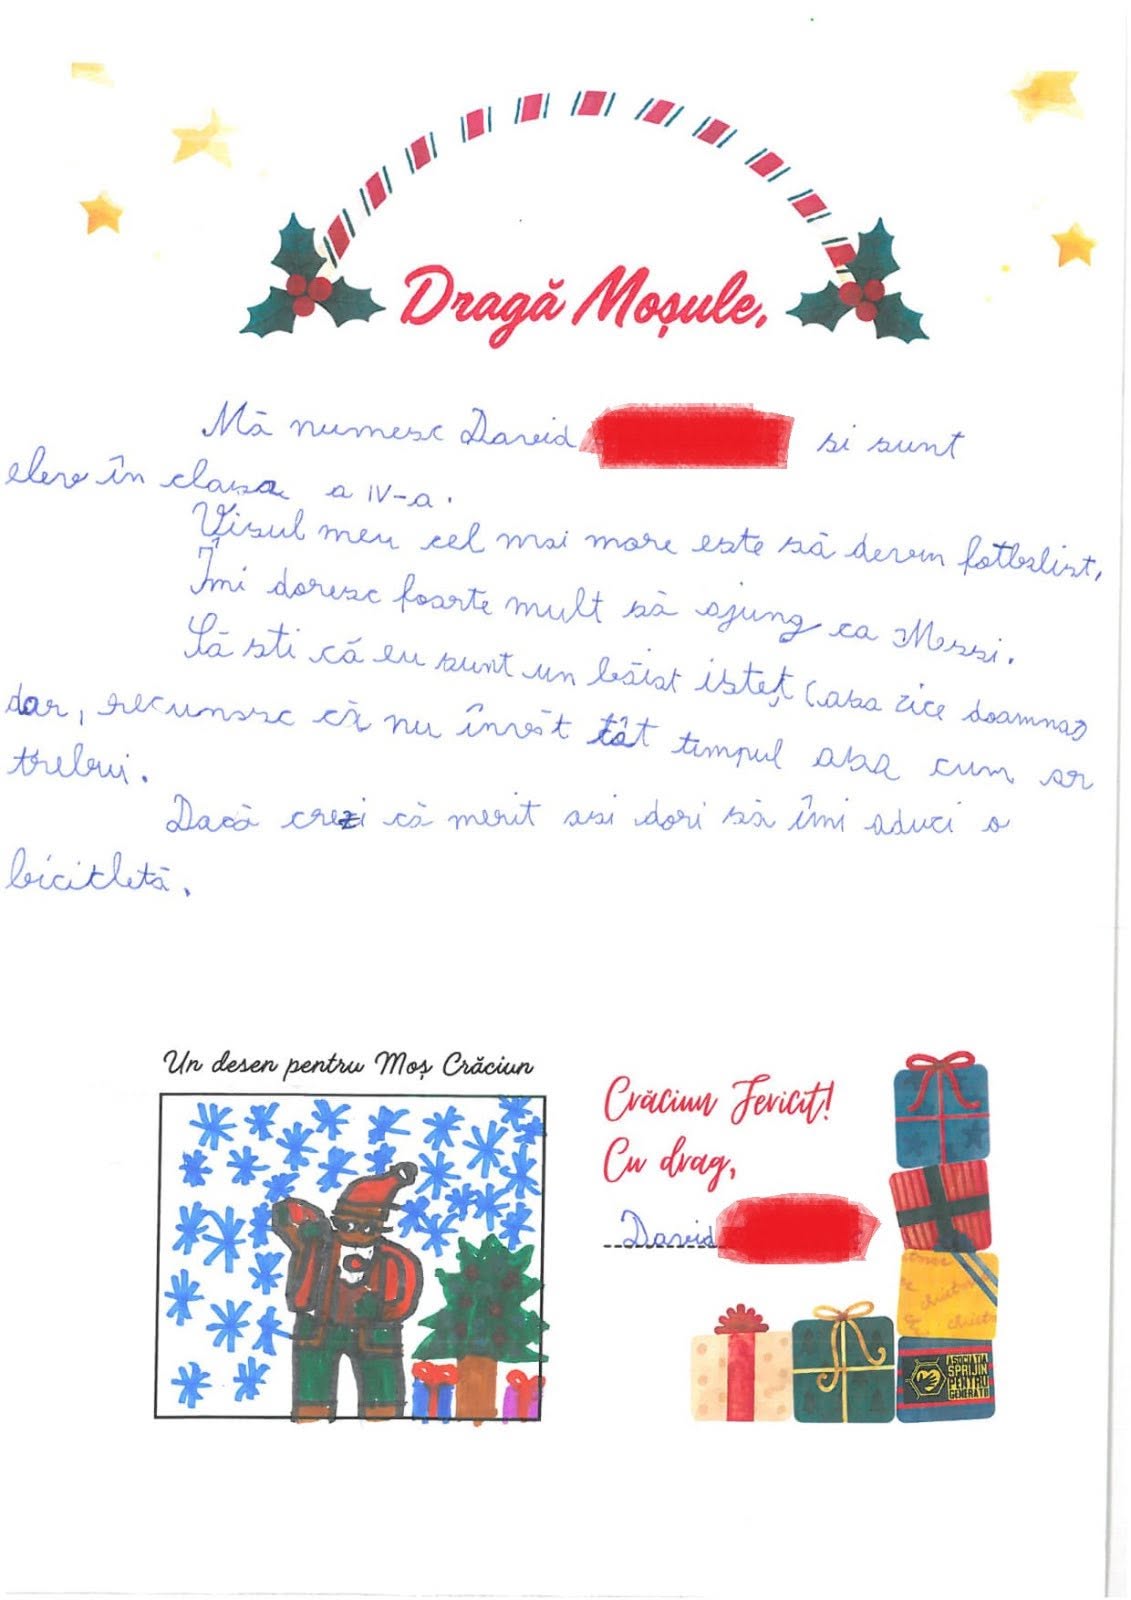 Dragă Moșule,
Mă numesc David si sunt
elev în clasa a IV-a.
Visul meu cel mai mare este să devin fotbalist.
Îmi doresc foarte mult să ajung ca Messi.
Să sti că eu sunt un băiat isteț (asa zice doamna)
dar, recunosc că nu învăt tot timpul asa cum ar
trebui.
Dacă crezi că merit asi dori să îmi aduci o
bicicletă.
Un desen pentru Moș Crăciun
Crăciun Fericit!
Cu drag,
David
ASOCIAȚIA
SPRIJIN
PENTRU
GENERAȚII